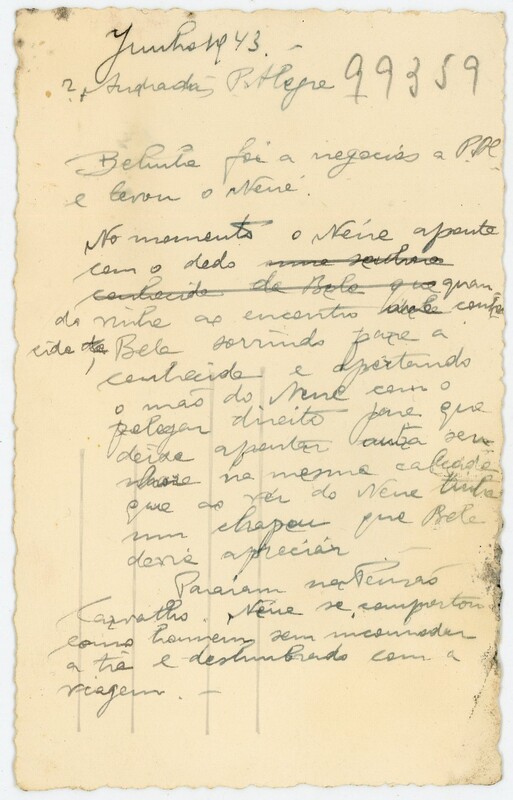 Junho 1943.
R. Andradas P. Alegre 99359
Belinha foi a negocios a P. Al
e levou o Nenê.
No momento o Nenê aponta
com o dedo uma senhora
conhecida da Bela que quan
do vinha ao encontro
cida da Bela sorrindo para a
conhecida e apertando
a mão do Nenê com o
polegar direito para que
deixe apontar outra sen
hora na mesma calçada
que ao ver do Nenê tinha
um chapeu que Bela
devia apreciar
Pararam na Pensão
Carvalho. Nenê se comportou
como homem sem incomodar
a tia e deslumbrado com a
viagem. —